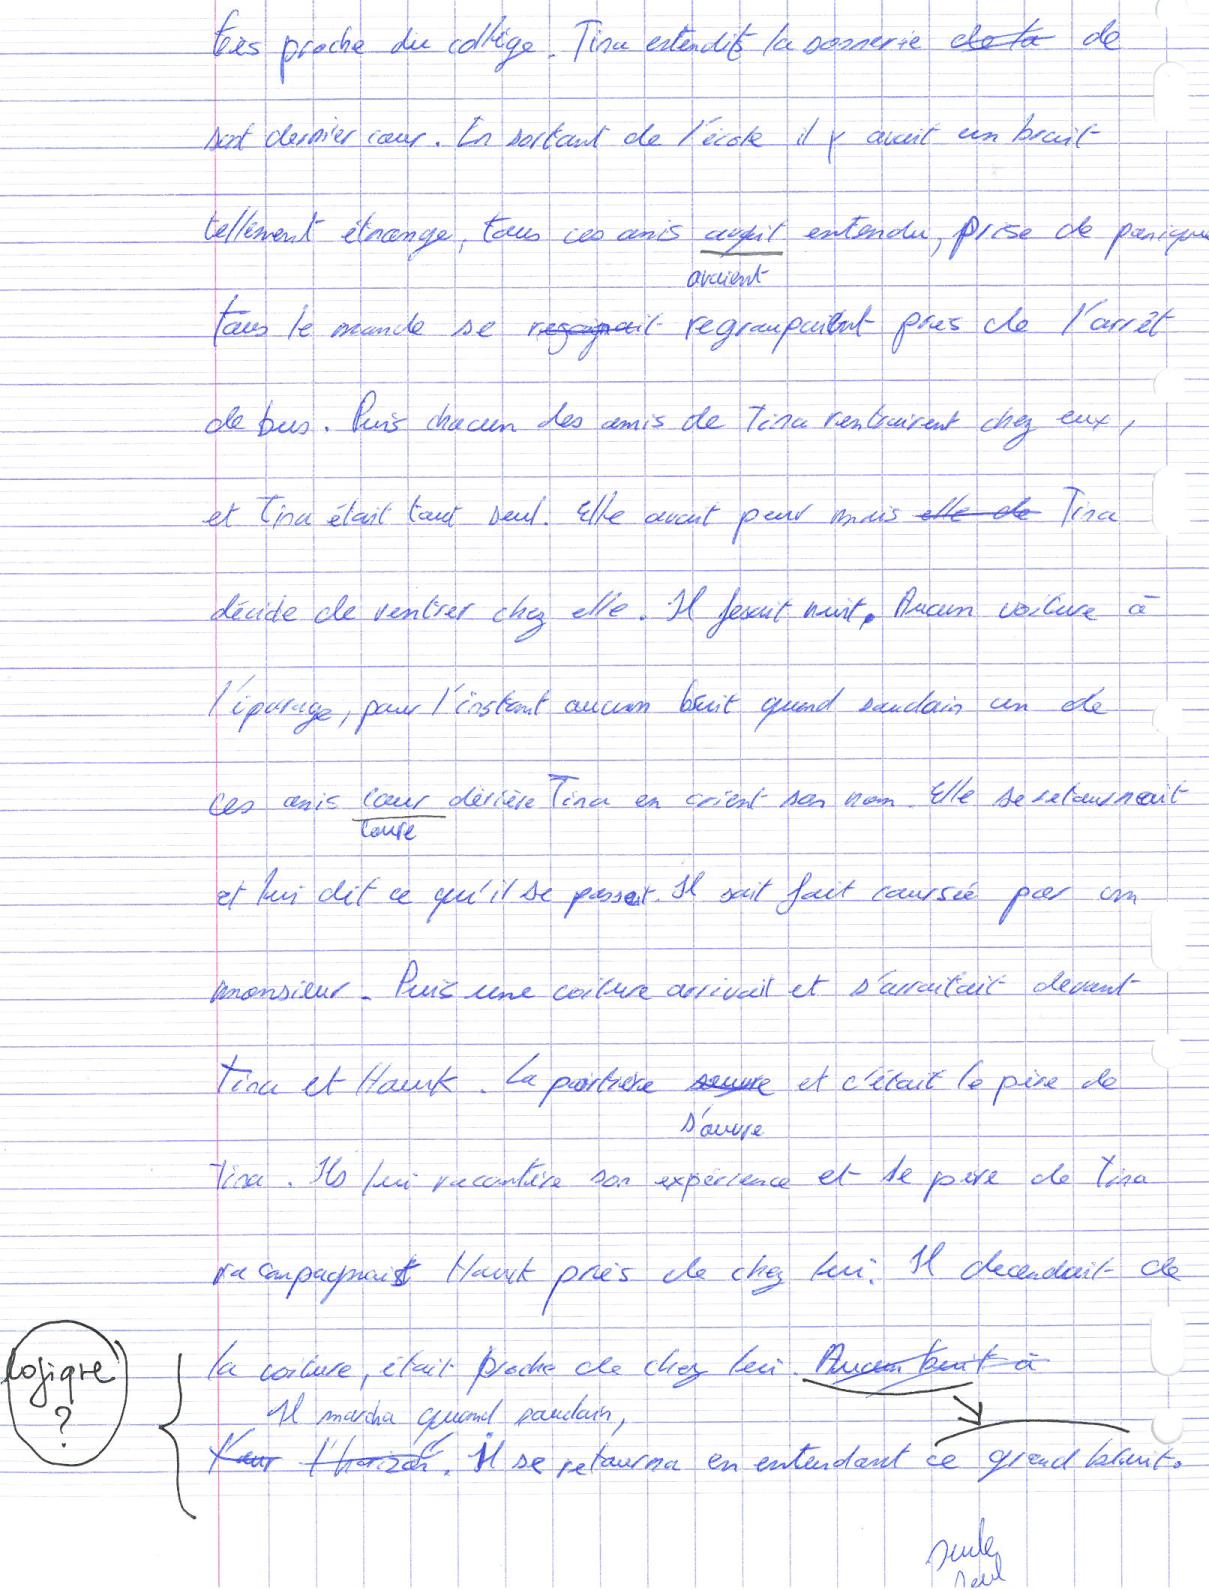 très proche du collège. Tina entendit la sonnerie de la de
sont dernier cour. En sortant de l'école il y avait un bruit
tellement étrange, tous ces amis avait entendu, prise de panique
avaient
tous le monde se regroupaient près de l'arrêt
de bus. Puis chacun des amis de Tina rentrairent chez eux,
et Tina était tout seul. Elle avait peur mais elle de Tina
décide de rentrer chez elle. Il fesait nuit. Aucun voiture à
l'iporage, pour l'instant aucun bruit quand soudain un de
ces amis cour dérière Tina en crient son nom. Elle se retournait
coure
et lui dit ce qu'il se passat. Il sait fait coursée par un
monsieur. Puis une voiture arrivait et s'arraitait devant
Tina et Hawk. La portière et c'était le père de
s'ouvre
Tina. Ils lui racontère son expérience et le père de Tina
racompagnait Hawk près de chez lui. Il decendait de
la voiture, était proche de chez lui. Aucun bruit à
logique
?
Il marcha quand soudain,
l'horizon. Il se retourna en entendant ce grand bruit.
seule
seul